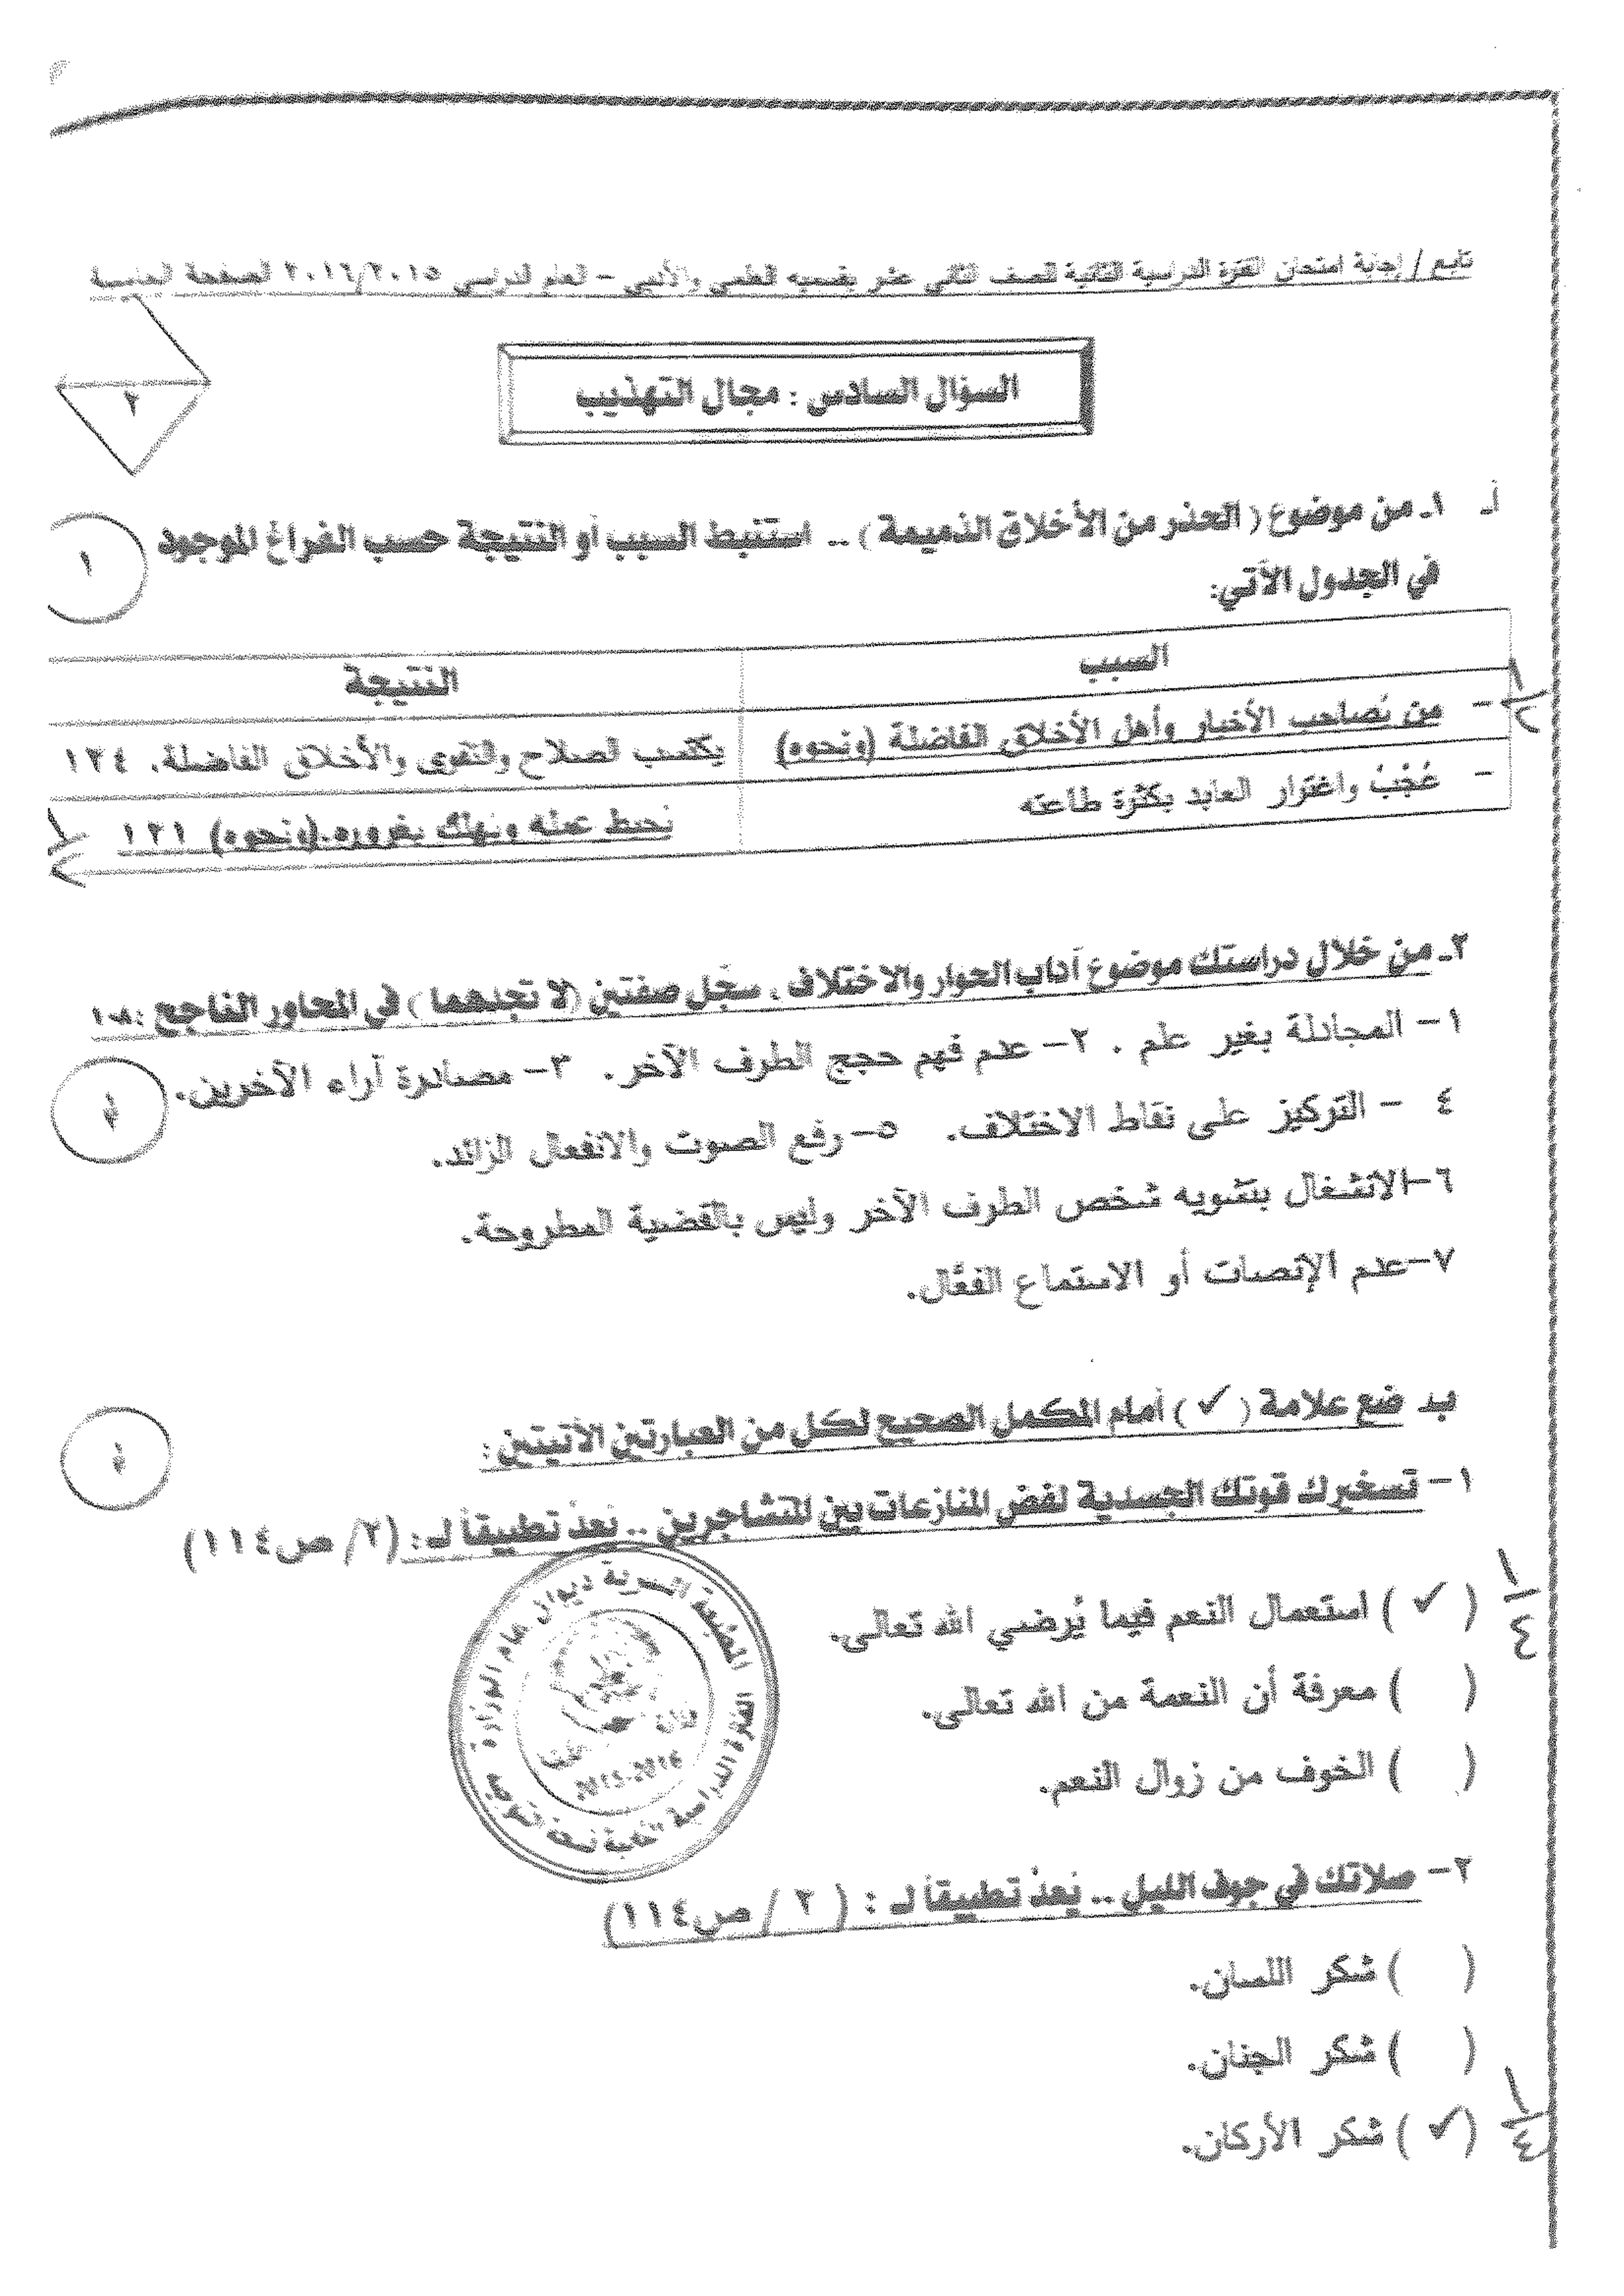 تابع / إجابة امتحان الفترة الدراسية الثانية للصف الثاني عشر بقسميه العلمي والأدبي – العام الدراسي ٢٠١٦/٢٠١٥ الصفحة
السؤال السادس : مجال التهذيب
٢
أـ ١ـ من موضوع ( الحذر من الأخلاق الذميمة ) .. استنبط السبب أو النتيجة حسب الفراغ الموجود
١
في الجدول الآتي:
السبب النتيجة
- من يُصاحب الأخيار وأهل الأخلاق الفاضلة (ونحوه) يكتسب الصلاح والتقوى والأخلاق الفاضلة. ١٣٤
١/٢
- عُجْبُ واغترار العابد بكثرة طاعته يحبط عمله ويهلك بغروره.(ونحوه) ١٣١
١/٢
٢ـ من خلال دراستك موضوع آداب الحوار والاختلاف ، سجّل صفتين (لا تجدهما ) في المحاور الناجح :١٠٨
١- المجادلة بغير علم . ٢- عدم فهم حجج الطرف الآخر. ٣- مصادرة آراء الآخرين.
٤ - التركيز على نقاط الاختلاف. ٥- رفع الصوت والانفعال الزائد.
٦-الانشغال بتشويه شخص الطرف الآخر وليس بالقضية المطروحة.
٧-عدم الإنصات أو الاستماع الفعَّال.
بـ ضع علامة ( ✓ ) أمام المكمل الصحيح لكل من العبارتين الآتيتين :
١- تسخيرك قوتك الجسدية لفض المنازعات بين المتشاجرين .. يُعدُّ تطبيقاً لـ : (٢/ ص١١٤)
( ✓ ) استعمال النعم فيما يُرضي الله تعالى.
١/٤
( ) معرفة أن النعمة من الله تعالى.
( ) الخوف من زوال النعم.
ديوان عام الوزارة
2015-2016
٢- صلاتك في جوف الليل .. يُعدُّ تطبيقاً لـ : ( ٢ / ص١١٤)
( ) شكر اللسان.
( ) شكر الجنان.
( ✓ ) شكر الأركان.
١/٤